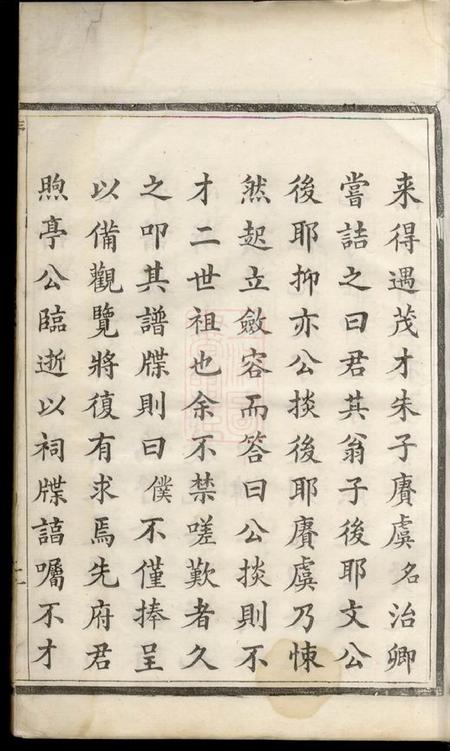 来得遇茂才朱子賡虞名治卿
嘗詰之曰君其翁子後耶文公
後耶抑亦公掞後耶賡虞乃悚
然起立斂容而答曰公掞則不
才二世祖也余不禁嗟歎者久
之叩其譜牒則曰僕不僅捧呈
以備觀覽將復有求焉先府君
煦亭公臨逝以祠牒諄囑不才